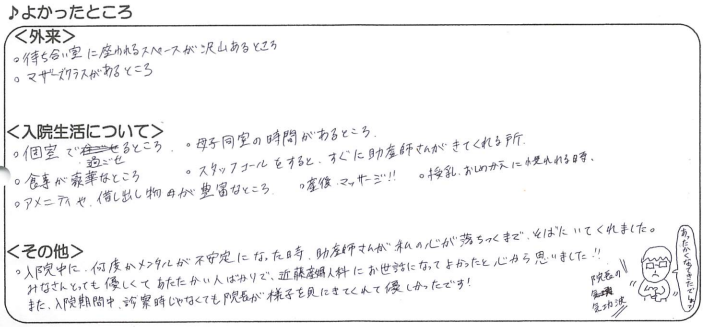 ♪よかったところ
<外来>
・待ち合い室に座われるスペースが沢山あるところ
・マザーズクラスがあるところ
<入院生活について>
・個室で過ごせるところ ・母子同室の時間があるところ.
・食事が豪華なところ ・スタッフコールをすると、すぐに助産師さんがきてくれる所.
・アメニティや、借し出し物が豊富なところ. ・産後.マッサージ!! ・授乳.おしめかえに慣れれる時.
<その他>
・入院中に、何度かメンタルが不安定になった時、助産師さんが私の心が落ちつくまで、そばにいてくれました。
みなさんとっても優しくてあたたかい人ばかりで、近藤産婦人科にお世話になってよかったと心から思いました!!
また、入院期間中、診察時じゃなくても院長が様子を見にきてくれて優しかったです!
あったかくなってきたでしょ?
院長の
気功波